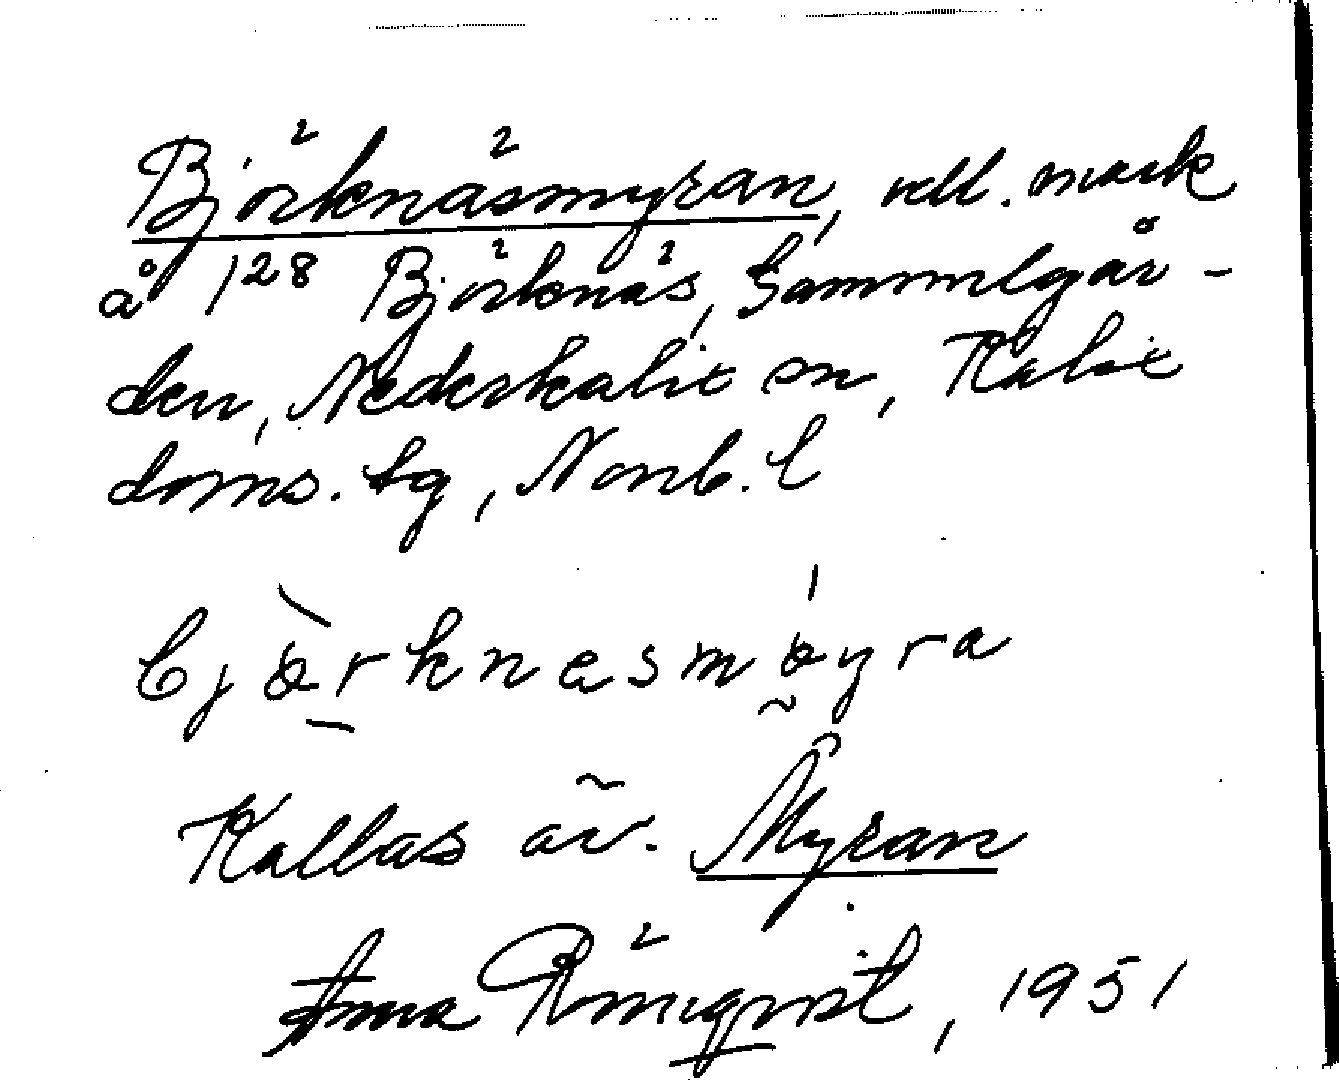 Björknäsmyran, odl. mark
å 1²⁸ Björknäs, Gammelgår-
den, Nederkalix sn, Kalix
doms. tg, Norrb. l
bjɵ̀rknesmɵ́yra
Kallas äv. Myran
Anna Rönnqvist, 1951